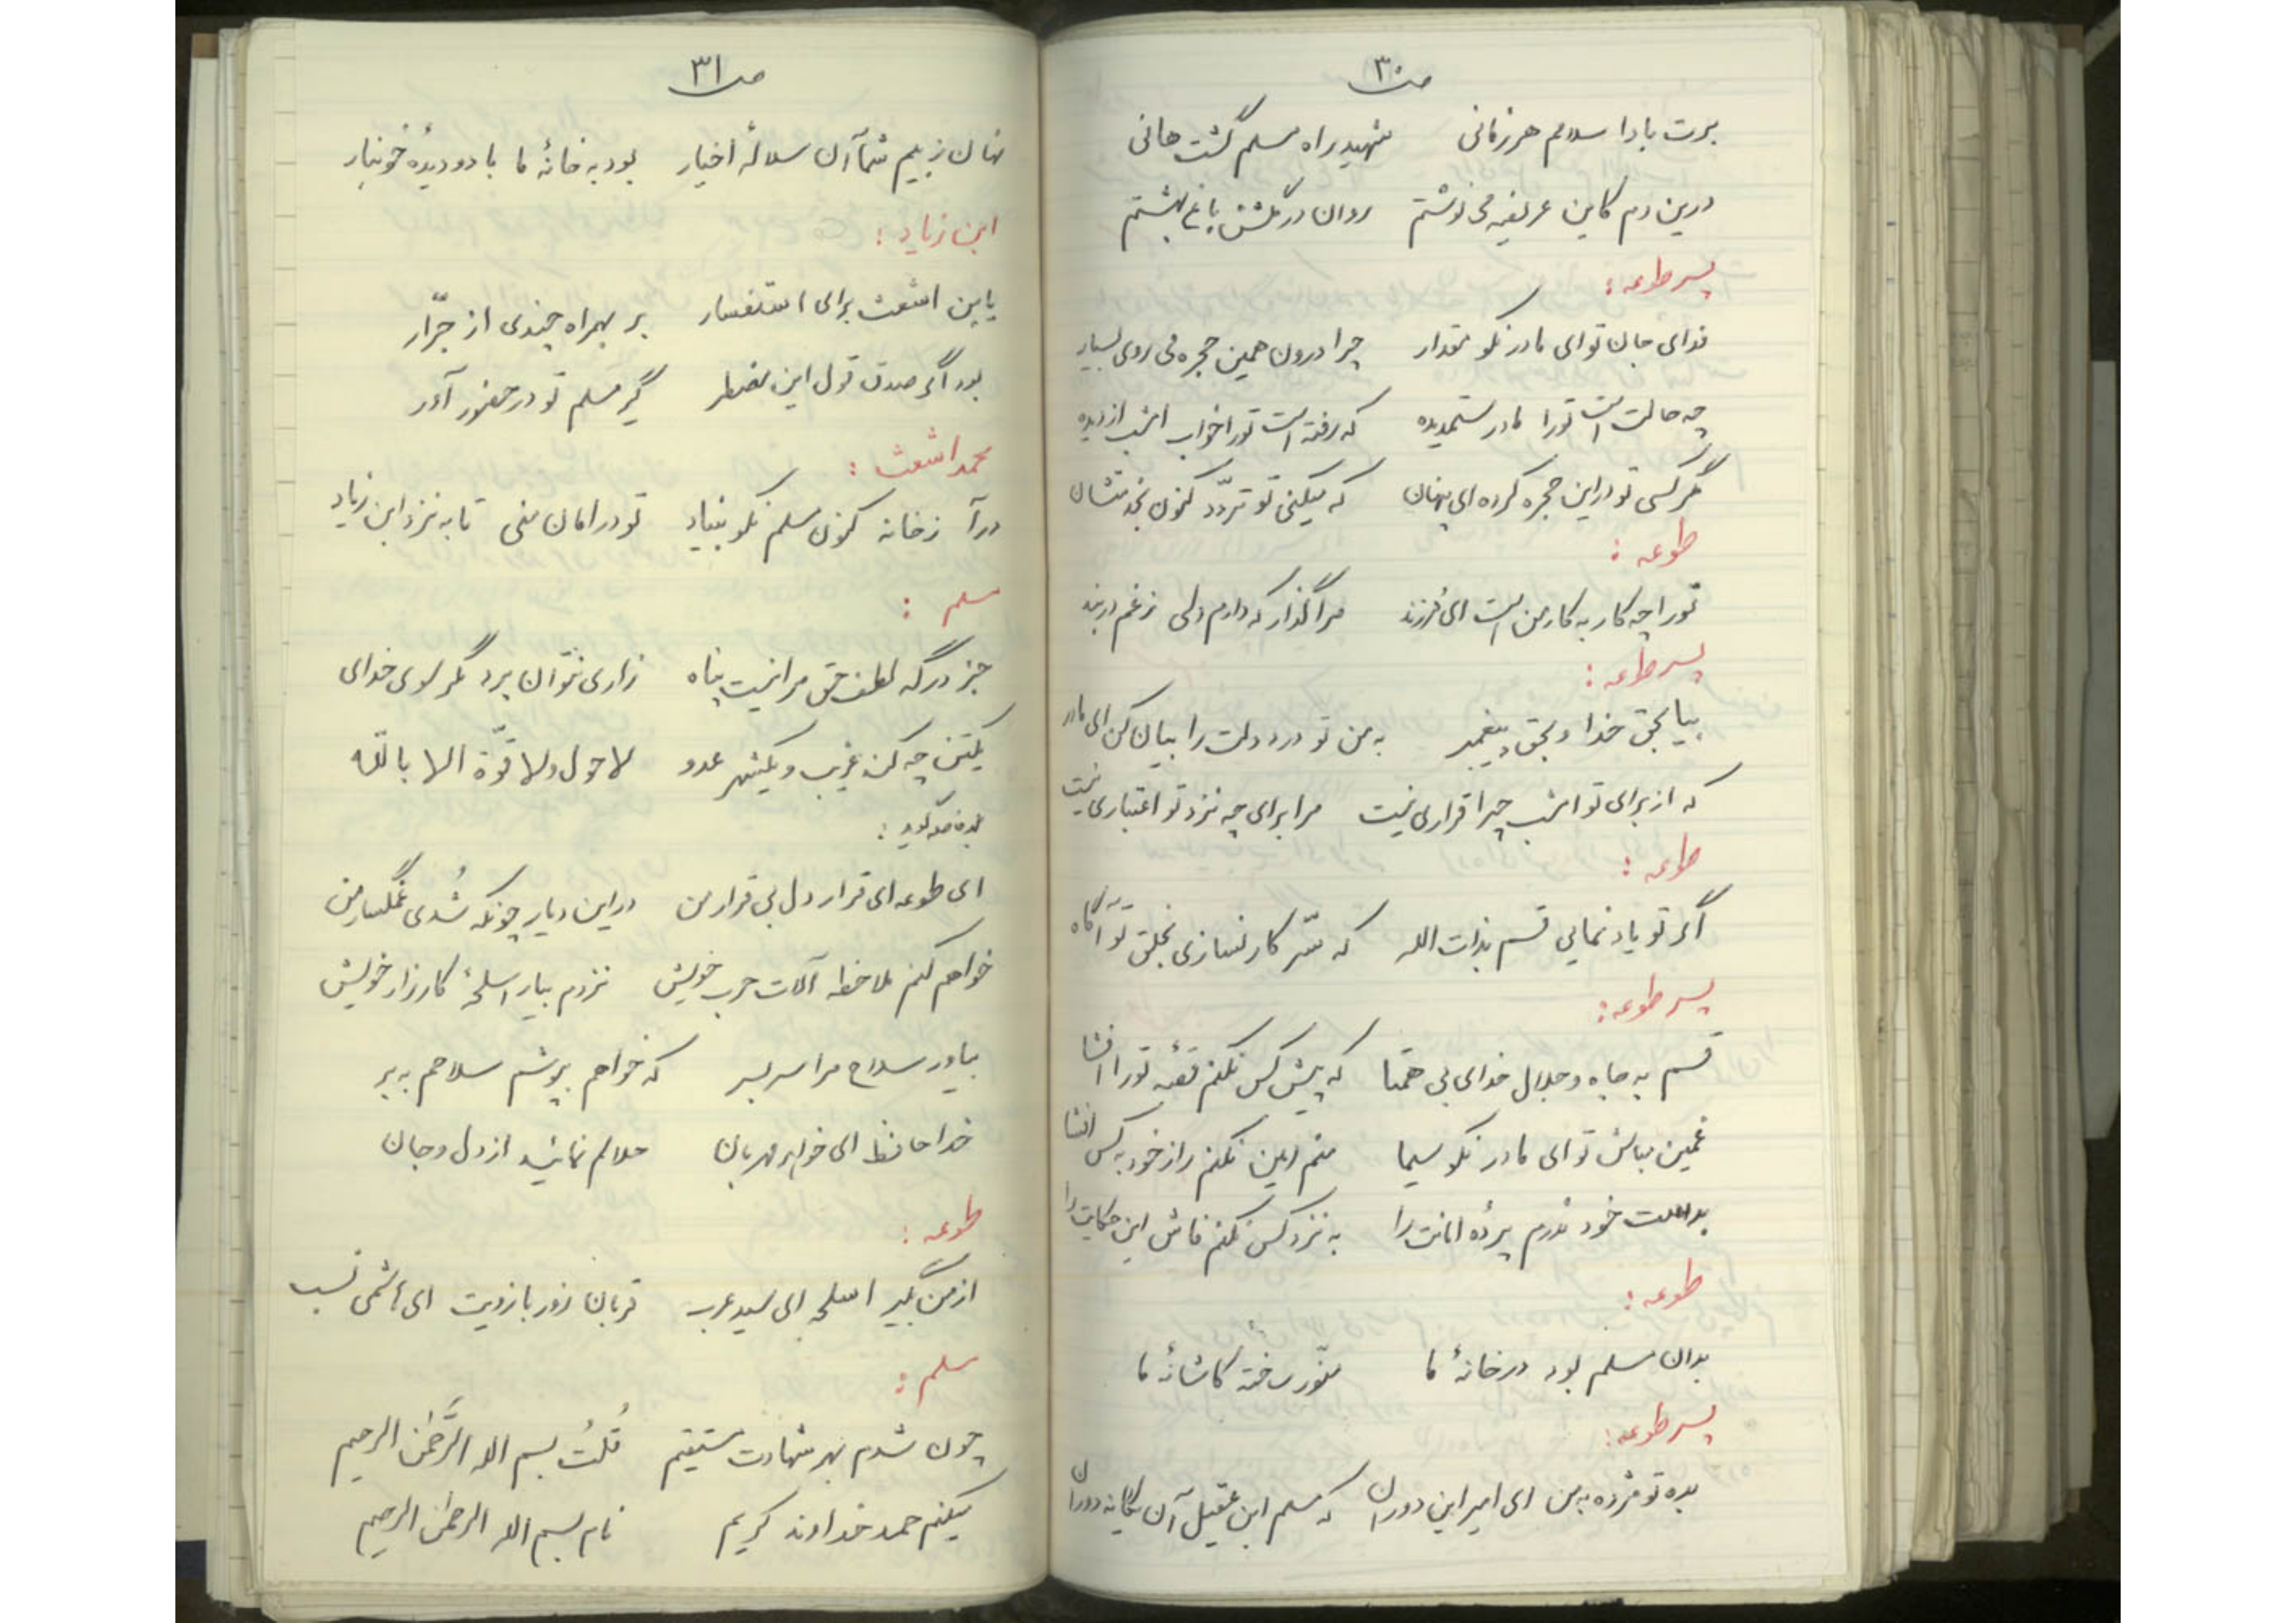 ص ۳۰
برت بادا سلام هر زمانی شهید راه مسلم گشت هانی
درین دم کاین عریضه می نوشتم روان در گلشن باغ بهشتم
پسر طوعه:
فدای جان تو ای مادر نکو مقدار چرا درون همین حجره می روی بسیار
چه حالت است تورا مادر ستمدیده که رفته است تورا خواب امشب از دیده
مگر کسی تو در این حجره کرده ای پنهان که میکنی تو تردّد کنون
طوعه:
تورا چه کار به کار من است ای فرزند مرا گذار که دارم دلی ز غم در بند
پسر طوعه:
بیا بحق خدا و بحق پیغمبر به من تو درد دلت را بیان کن ای مادر
که از برای تو امشب چرا قراری نیست مرا برای چه نزد تو اعتباری نیست
طوعه:
اگر تو یاد نمایی قسم بذات الله که سّر کار نسازی بخلق تو آگاه
پسر طوعه:
قسم به جاه و جلال خدای بی همتا که پیش کس نکنم قصّه تورا افشا
غمین مباش تو ای مادر نکو سیما منم امین نکنم راز خود به کس افشا
بدست خود ندرم پردهٔ امانت را به نزد کس نکنم فاش این حکایت را
طوعه:
بدان مسلم بود در خانهٔ ما منّور ساخته کاشانهٔ ما
پسر طوعه:
بده تو مژده به من ای امیر این دوران که مسلم ابن عقیل آن یگانه دوران
ص ۳۱
نهان ز بیم شما آن سلالهٔ اخیار بود به خانهٔ ما با دو دیدهٔ خونبار
ابن زیاد:
یابن اشعث برای استفسار بر بهمراه چندی از جرّار
بود اگر صدق قول این مضطر گیر مسلم تو در حضور آور
محمد اشعث:
درآ ز خانه کنون مسلم نکو بنیاد تو در امان منی تا به نزد ابن زیاد
مسلم:
جز درگه لطف حق مرا نیست پناه زاری نتوان برد مگر سوی خدای
یکتن چه کند غریب و یکشهر عدو لا حول ولا قوّة الا بالله
گوید:
ای طوعه ای قرار دل بی قرار من در این دیار چونکه شُدی غمگسار من
خواهم کنم ملاحظه آلات حرب خویش نزدم بیار اسلحهٔ کارزار خویش
بیاور سلاح مرا سربسر که خواهم بپوشم سلاحم به بر
خدا حافظ ای خواهر مهربان حلالم نمائید از دل و جان
طوعه:
از من بگیر اسلحه ای سید عرب قربان زور بازویت ای هاشمی نسب
مسلم:
چون شدم بهر شهادت مستقیم قُلتُ بسم الله الرَّحمٰن الرحیم
میکنم حمد خداوند کریم نام بسم الله الرحمٰن الرحیم